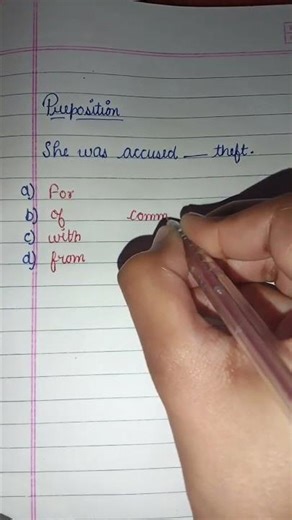 Preposition
She was accused __ theft.
a) For
b) of comm
c) with
d) from